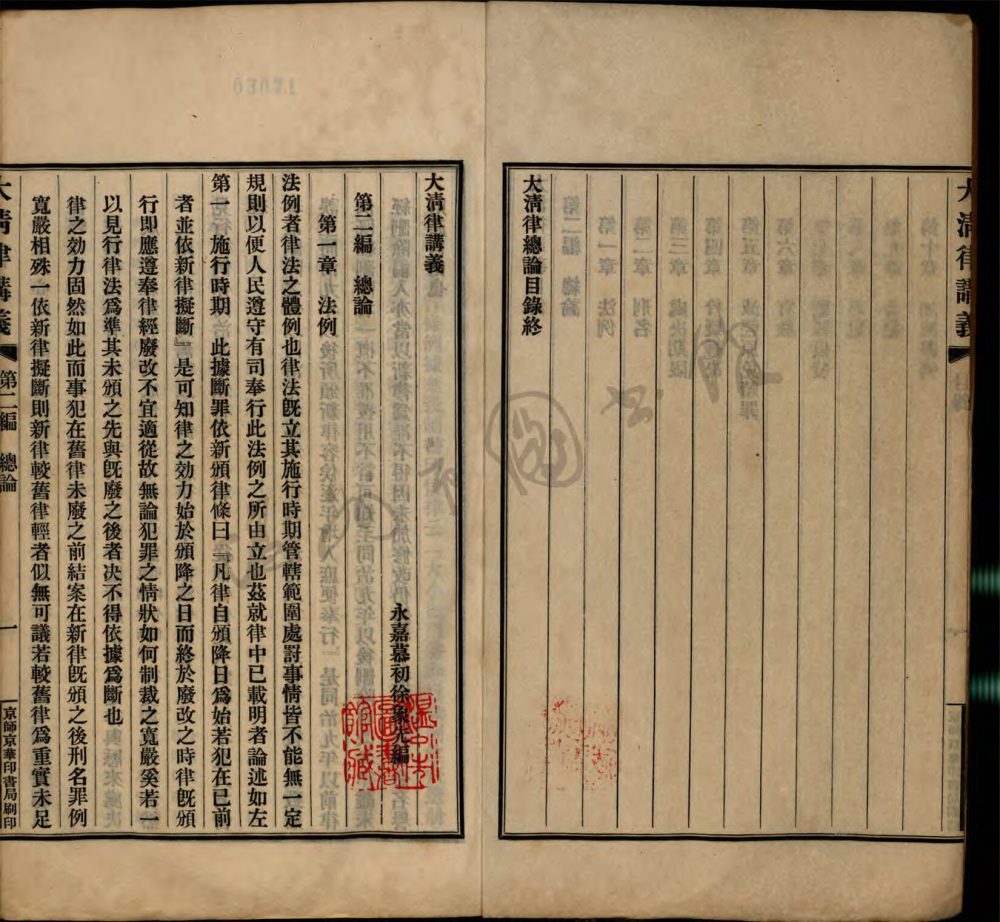 大清律講義
大清律總論目錄終
大清律講義
永嘉慕初徐象先編
第二編　總論
第一章　法例
法例者律法之體例也律法旣立其施行時期管轄範圍處罸事情皆不能無一定
規則以便人民遵守有司奉行此法例之所由立也茲就律中已載明者論述如左
第一　施行時期　此據斷罪依新頒律條曰『凡律自頒降日爲始若犯在已前
者並依新律擬斷』是可知律之効力始於頒降之日而終於廢改之時律旣頒
行卽應遵奉律經廢改不宜適從故無論犯罪之情狀如何制裁之寬嚴奚若一
以見行律法爲準其未頒之先與旣廢之後者决不得依據爲斷也
律之効力固然如此而事犯在舊律未廢之前結案在新律旣頒之後刑名罪例
寬嚴相殊一依新律擬斷則新律較舊律輕者似無可議若較舊律爲重實未足
大清律講義　第二編　總論　一　京師京華印書局刷印